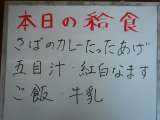 本日の給食
さばのカレーたったあげ
五目汁・紅白なます
ご飯・牛乳